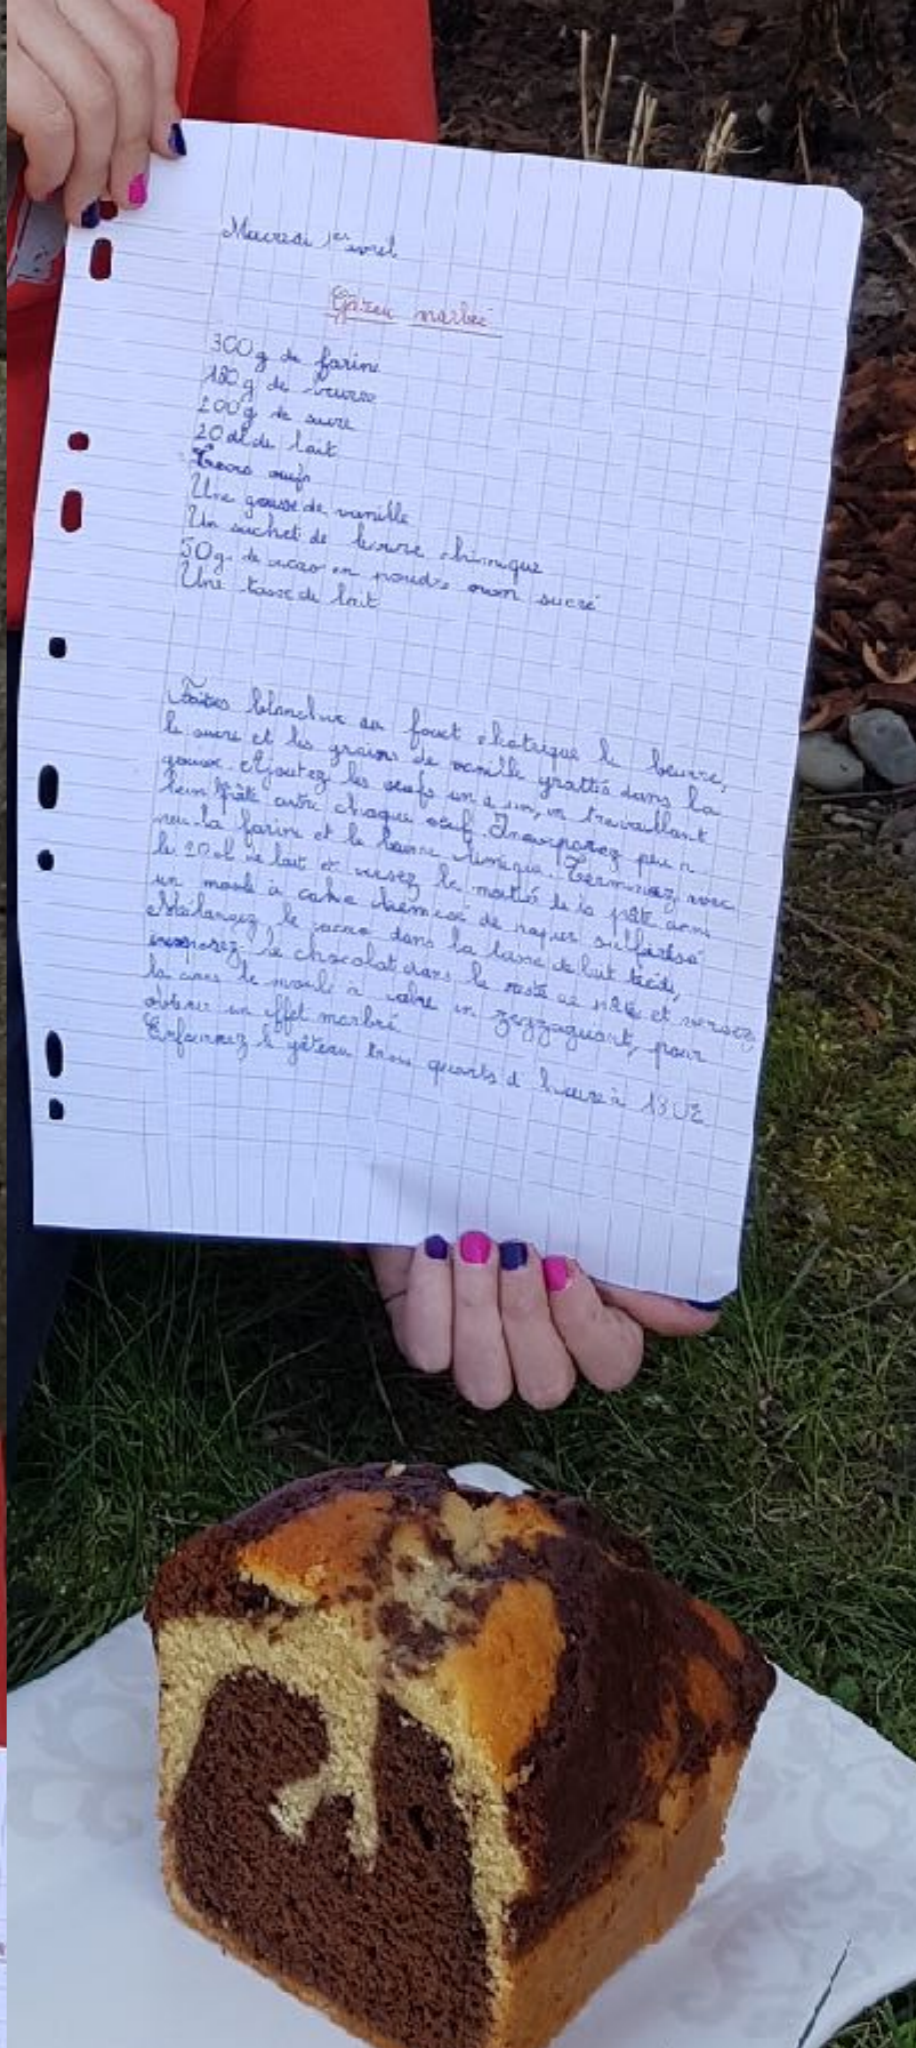 Mercredi 1er avril
Gâteau marbré
300g de farine
180g de beurre
200g de sucre
20 dl de lait
Trois œufs
Une gousse de vanille
Un sachet de levure chimique
50g de cacao en poudre non sucré
Une tasse de lait
Faites blanchir au fouet électrique le beurre,
le sucre et les grains de vanille grattés dans la
gousse. Ajoutez les œufs un à un, en travaillant
bien pâte entre chaque œuf. Incorporez peu à
peu la farine et la levure chimique. Terminez avec
le 20 dl de lait et versez la moitié de la pâte dans
un moule à cake chemisé de papier sulfurisé
Mélangez le cacao dans la tasse de lait tiède,
incorporez le chocolat dans le reste de pâte et versez
la dans le moule à cake en zigzaguant, pour
obtenir un effet marbré
Enfournez le gâteau trois quarts d'heure à